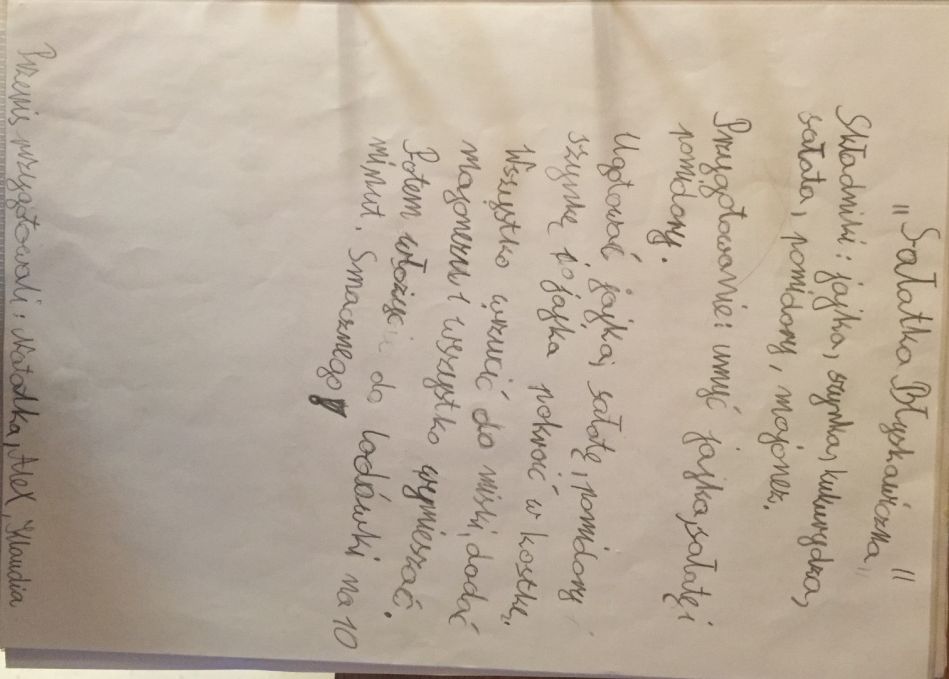 "Sałatka Błyskawiczna"
Składniki: jajka, szynka, kukurydza,
sałata, pomidory, majonez.
Przygotowanie: umyć jajka, sałatę i
pomidory.
Ugotować jajka, sałatę, pomidory
szynkę jajka pokroić w kostkę.
Wszystko wrzucić do miski, dodać
majonezu i wszystko wymieszać.
Potem włożyć do lodówki na 10
minut. Smacznego
przygotowali: Natalka, Alex, Klaudia